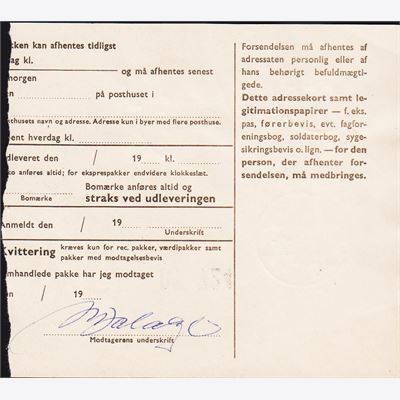 kken kan afhentes tidligst
ag kl.
og må afhentes senest
morgen
en / på posthuset i
osthusets navn og adresse. Adresse kun i byer med flere posthuse.
ent hverdag kl.
dleveret den / 19 kl.
ko anføres altid; for eksprespakker endvidere klokkeslæt.
Bomærke anføres altid og
straks ved udleveringen
Bomærke
Anmeldt den / 19
Underskrift
Kvittering kræves kun for rec. pakker, værdipakker samt
pakker med modtagelsesbevis
omhandlede pakke har jeg modtaget
en / 19
Modtagerens underskrift
Forsendelsen må afhentes af
adressaten personlig eller af
hans behørigt befuldmægti-
gede.
Dette adressekort samt le-
gitimationspapirer — f. eks.
pas, førerbevis, evt. fagfor-
eningsbog, soldaterbog, syge-
sikringsbevis o. lign. — for den
person, der afhenter for-
sendelsen, må medbringes.